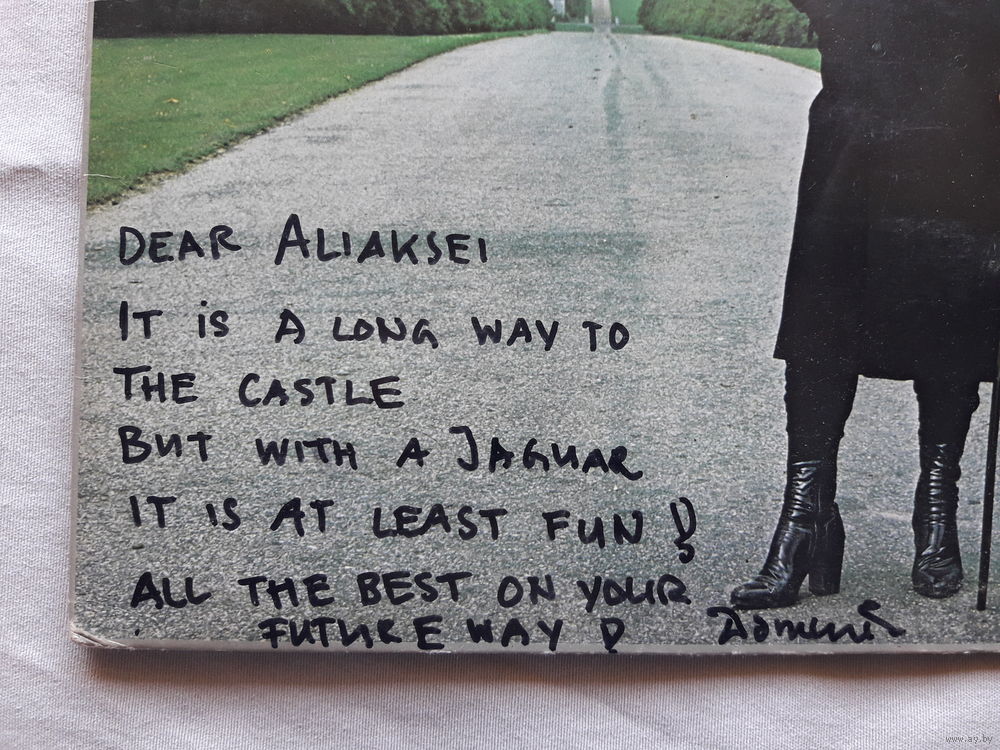 DEAR ALIAKSEI
IT IS A LONG WAY TO
THE CASTLE
BUT WITH A JAGUAR
IT IS AT LEAST FUN !
ALL THE BEST ON YOUR
FUTURE WAY
www.ay.by